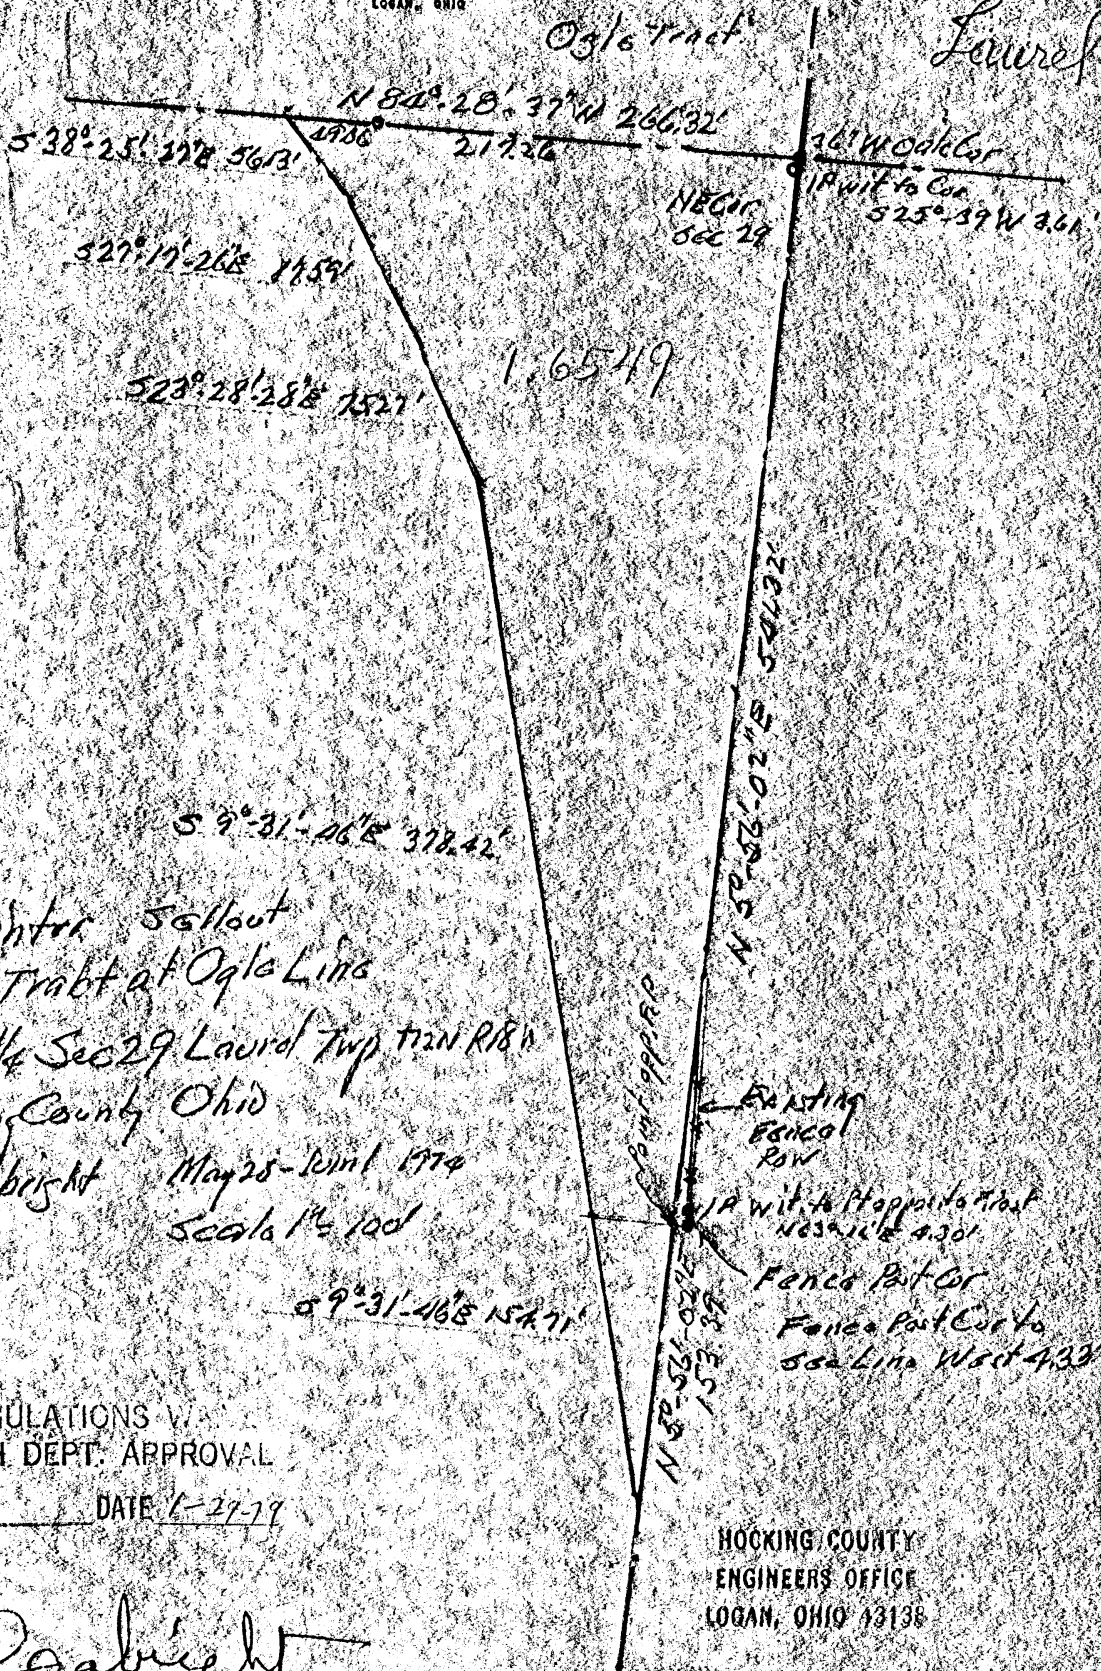 LOGAN, OHIO
Ogle Tract
Laurel
N 84°-28'-37" W 266.32'
S 38°-25'-37"E 56.13'
49.06
217.26
36" W Oak Cor
IP wit to Cor
S 25°-39' W 3.61'
NE Cor
Sec 29
S 27°-17'-26"E 87.59'
1.6549
S 23°-28'-28"E 75.27'
N 5°-56'-02"E 541.32'
S 9°-31'-46"E 378.42'
Sellout
Tract at Ogle Line
1/4 Sec 29 Laurel Twp T12N R18W
County Ohio
May 28 - June 1 1974
Scale 1"= 100'
Point opp IP
Existing
Fence
Row
IP wit to Pt opposite
N 63°-16' E 4.30'
Fence Post Cor
Fence Post Cor to
Sec Line West 4.33'
S 9°-31'-46"E 154.71'
N 5°-56'-02"E
153.39
ULATIONS
DEPT. APPROVAL
DATE 6-29-79
HOCKING COUNTY
ENGINEERS OFFICE
LOGAN, OHIO 43138